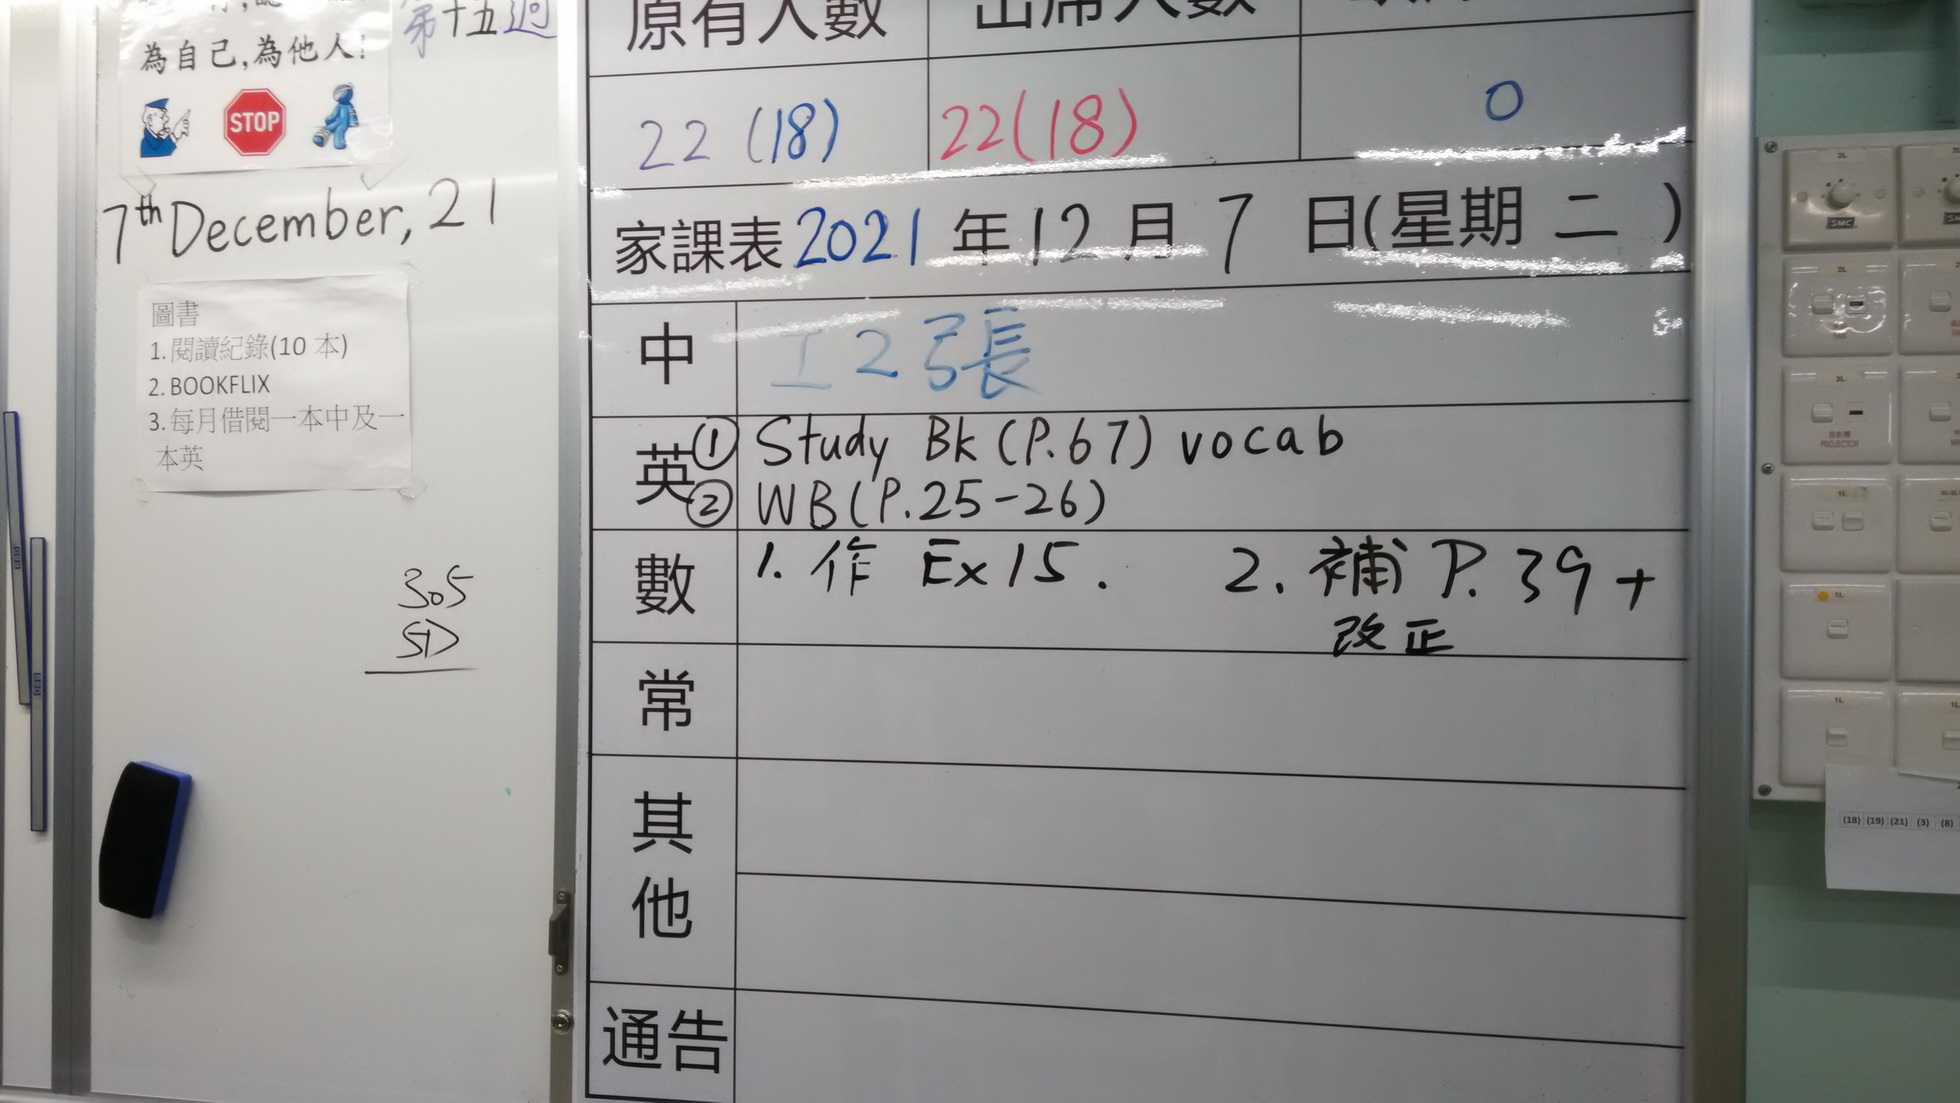 為自己,為他人!
STOP
第十五週
7th December, 21
圖書
1. 閱讀紀錄(10 本)
2. BOOKFLIX
3. 每月借閱一本中及一
本英
305
原有人數
出席人數
22 (18)
22(18)
0
家課表 2021 年 12 月 7 日(星期 二 )
中
工2張
英
① Study Bk (P.67) vocab
② WB (P.25-26)
數
1. 作 Ex 15. 2. 補 P. 39 +
改正
常
其他
通告
2L
SMC
2L
2L
PROJECTOR
1L
1L
1L
(18) (19) (21) (3) (8)